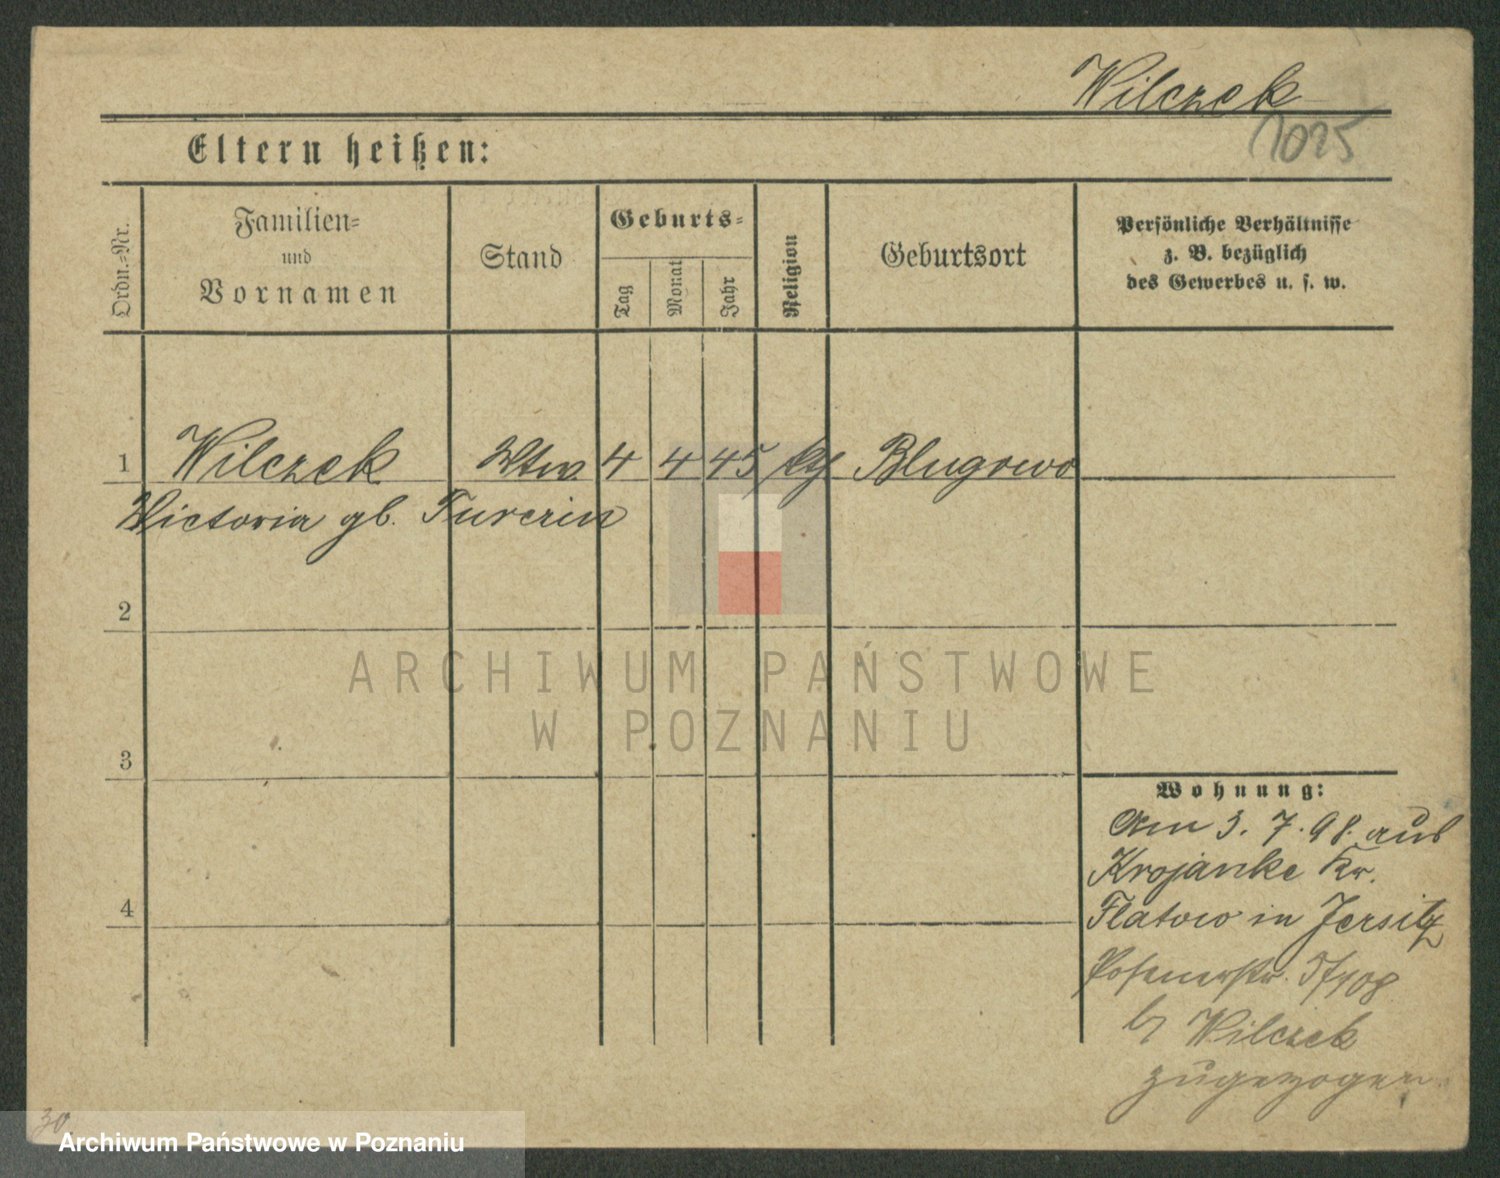 Wilczek
1025
Eltern heißen:
Ordn.-Nr.
Familien-
und
Vornamen
Stand
Geburts-
Tag
Monat
Jahr
Religion
Geburtsort
Persönliche Verhältnisse
z. B. bezüglich
des Gewerbes u. s. w.
1 Wilczek Wtw. 4 4 45 kth Blugowo
Victoria gb. Turczin
2
ARCHIWUM PAŃSTWOWE
W POZNANIU
3
Wohnung:
Am 3. 7. 98. aus
Krojanke Kr.
4
Flatow in Jersitz
Posenerstr.
b/ Wilczek
zugezogen
30.
Archiwum Państwowe w Poznaniu